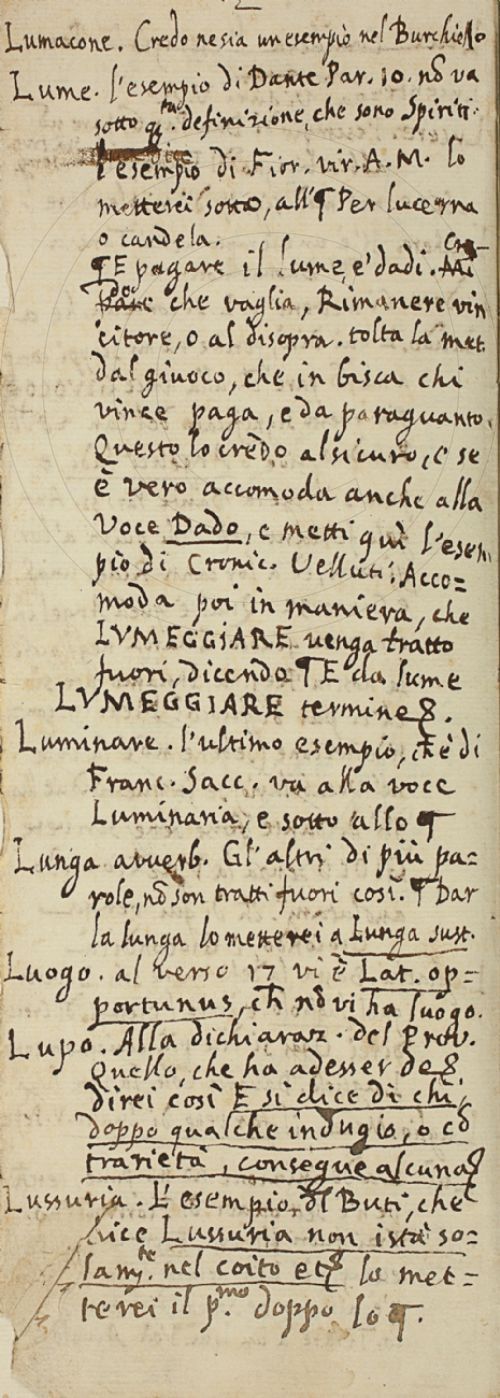 Lumacone. Credo ne sia un esempio nel Burchiello
Lume. l'esempio di Dante Par. 10. nõ va
sotto qta. definizione, che sono Spiriti.
l'esempio di Fior. vir. A. M. lo
metterei sotto, all'¶ Per lucerna
o candela.
¶ E pagare il lume, è dadi. Cre-
do che vaglia, Rimanere vin
citore, o al disopra. tolta la met.
dal giuoco, che in bisca chi
vince paga, e da paraguanto.
Questo lo credo al sicuro, e se
è vero accomoda anche alla
voce Dado, e metti quì l'esem
pio di Cronic. Velluti. Acco=
moda poi in maniera, che
LVMEGGIARE venga tratto
fuori, dicendo ¶ E da lume
LVMEGGIARE termine &.
Luminare. l'ultimo esempio, ch'è di
Franc. Sacc. va alla voce
Luminaria, e sotto allo ¶
Lunga avverb. Gl'altri di più pa=
role, nõ son tratti fuori così. ¶ Dar
la lunga lo metterei a Lunga sust.
Luogo. al verso 17 vi è Lat. op=
portunus, ch̃ nõ vi ha luogo.
Lupo. Alla dichiaraz. del Prov.
Quello, che ha adesser de &
direi così E si dice di chi,
doppo qualche indugio, o cõ
trarietà, consegue alcuna &
Lussuria. L'esempio, del Buti, che
dice Lussuria non istà so=
lamte. nel coito et& lo met=
terei il pmo. doppo lo ¶.